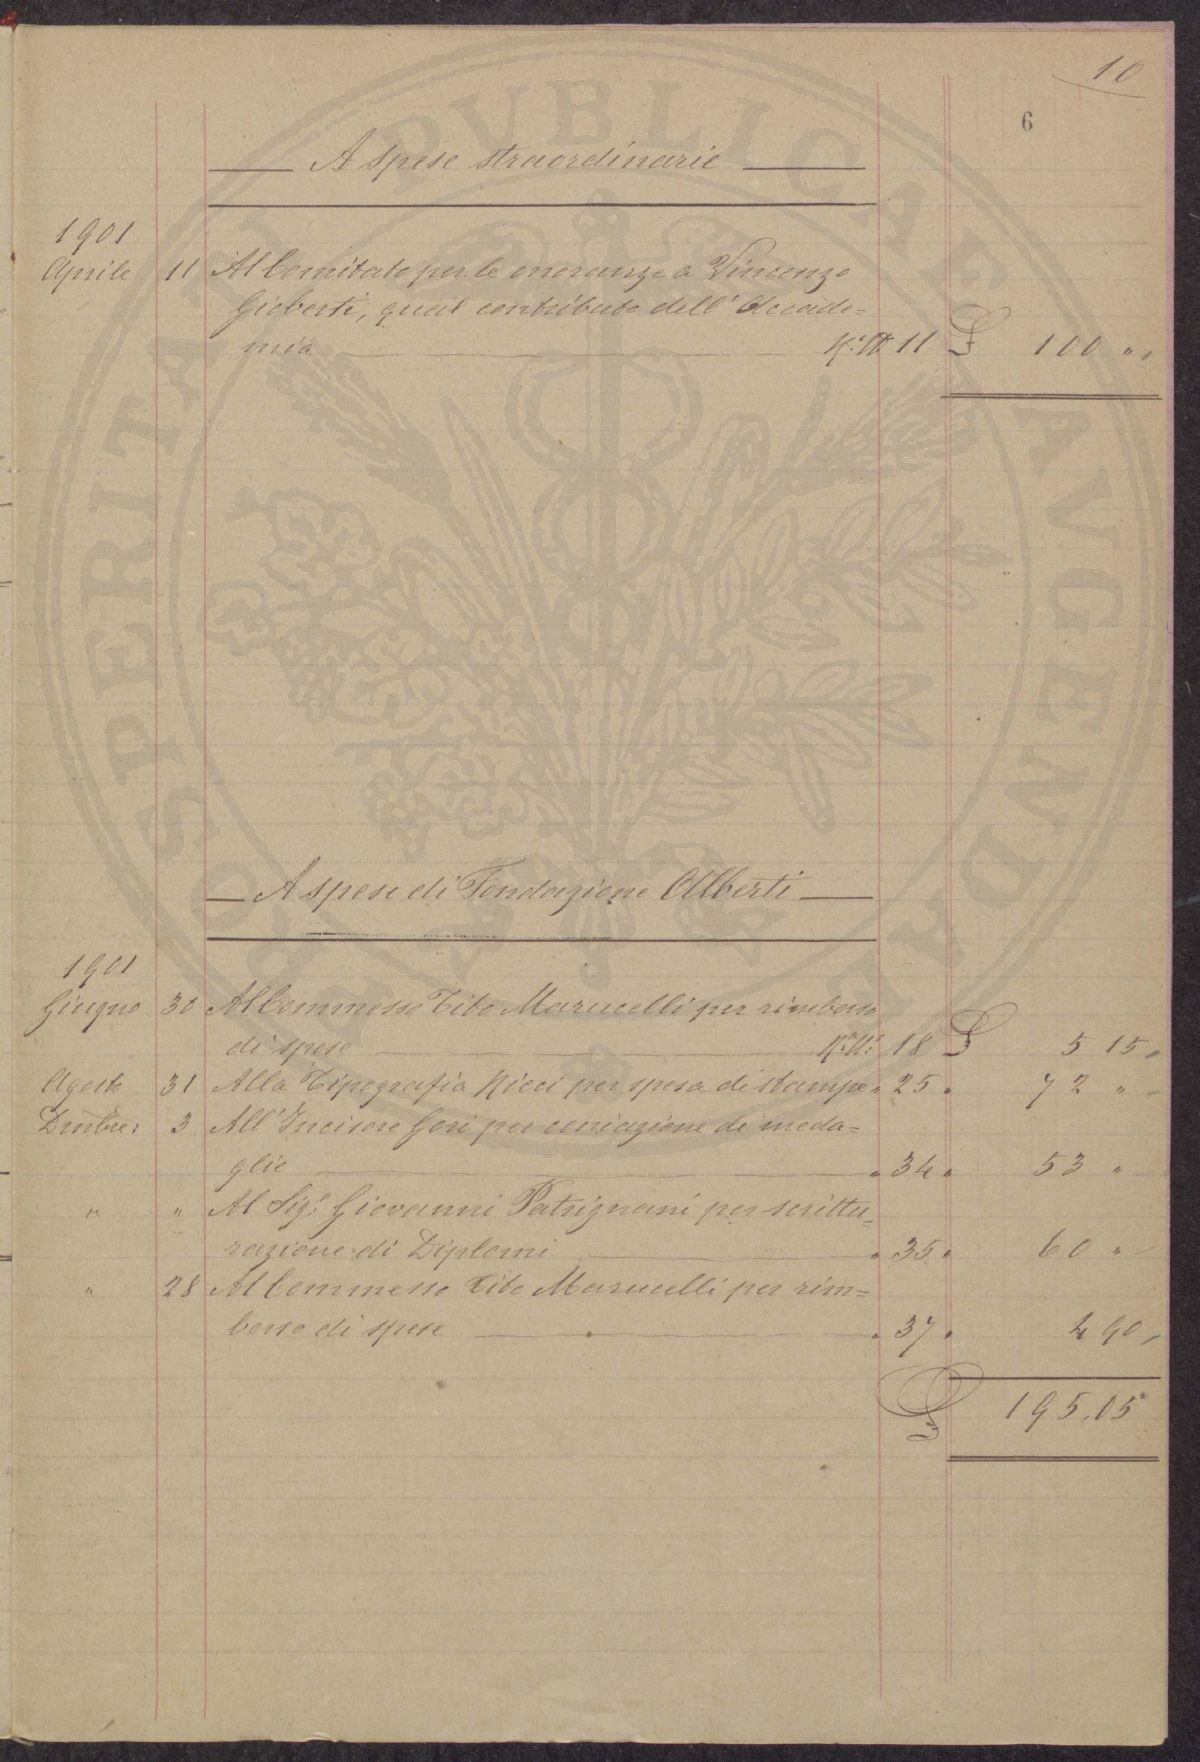 10
6
A spese straordinarie
1901
Aprile 11 Al Comitato per le onoranze a Vincenzo
Gioberti, qual contributo dell'Accade=
mia 11 £ 100 " "
A spese di Fondazione Alberti
1901
Giugno 30 Al Commesso Tito Marucelli per rimborso
di spese 18 £ 5 15 "
Agosto 31 Alla Tipografia Ricci per spesa di stampe " 25 " 72 "
Dmbre: 3 All'Incisore Gori per coniazione di meda=
glie " 34 " 53 "
" " Al Sigr Giovanni Patrignani per scrittu=
razione di Diplomi " 35 " 60 "
" 28 Al Commesso Tito Marucelli per rim=
borso di spese " 37 " 4 90 "
£ 195.05
PROSPERITATI PVBLICAE AVGENDAE